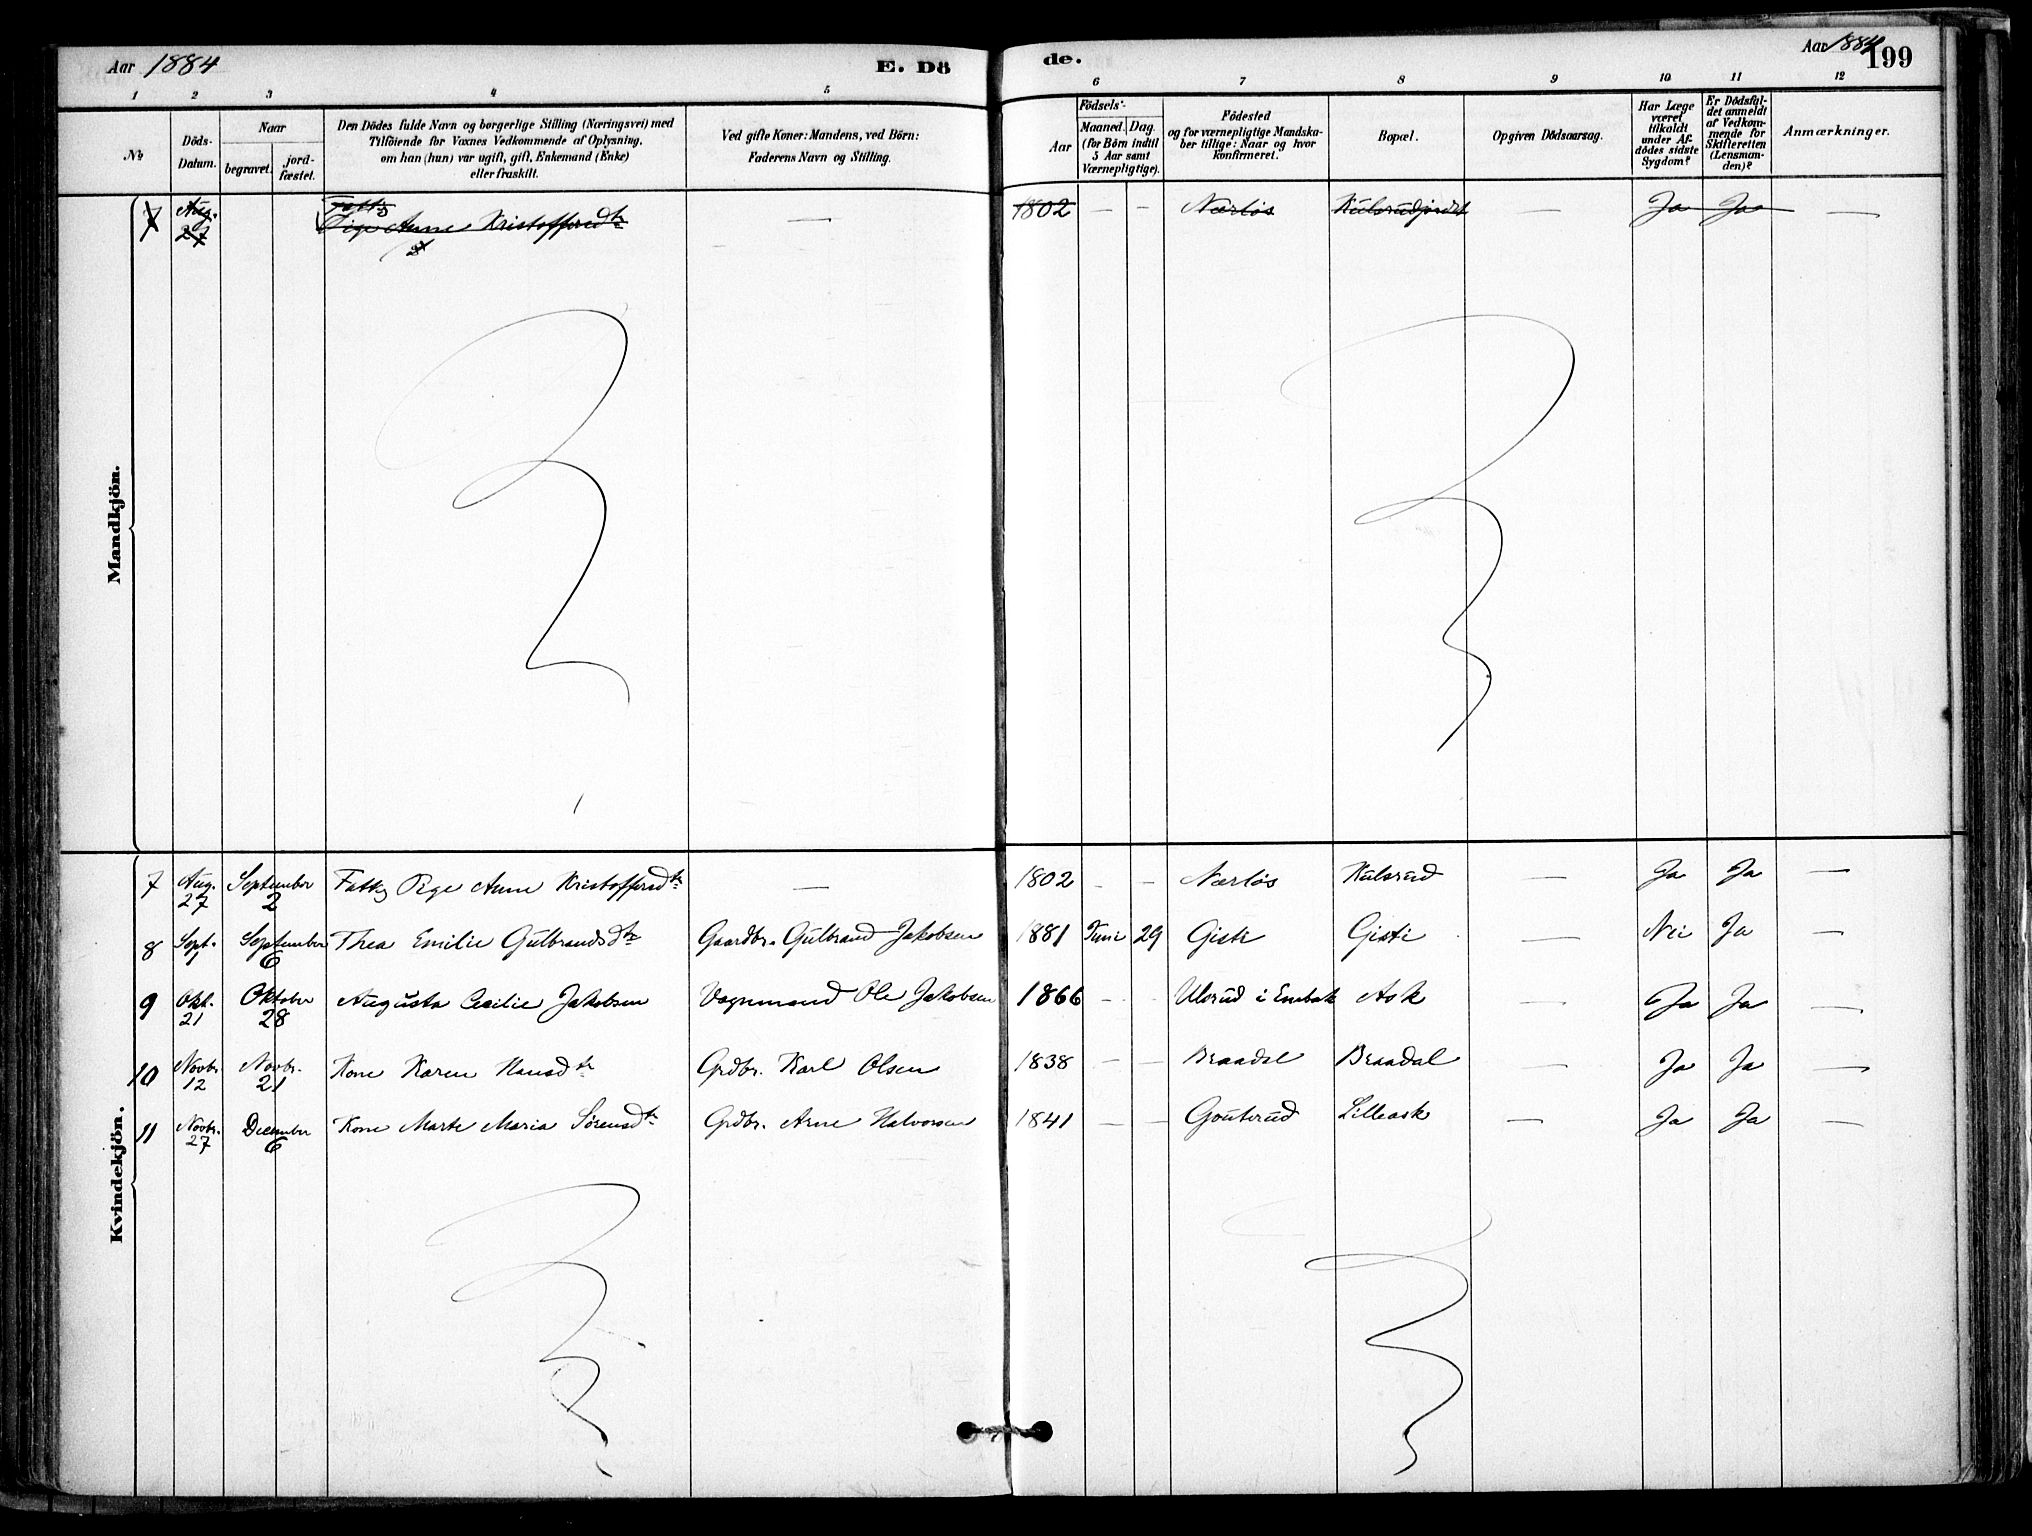 Aar 1884
E. Dö
de.
Aar 1884
199
1 2 3 4 5 6 7 8 9 10 11 12
No
Döds-
Datum.
Naar
begravet.
jord-
fæstet.
Den Dödes fulde Navn og borgerlige Stilling (Næringsvei) med
Tilföiende for Voxnes Vedkommende af Oplysning,
om han (hun) var ugift, gift, Enkemand (Enke)
eller fraskilt.
Ved gifte Koner: Mandens, ved Börn:
Faderens Navn og Stilling.
Födsels-
Aar
Maaned. Dag.
(for Börn indtil
5 Aar samt
Værnepligtige).
Födested
og for værnepligtige Mandska-
ber tillige: Naar og hvor
konfirmeret.
Bopæl.
Opgiven Dödsaarsag.
Har Læge
været
tilkaldt
under Af-
dödes sidste
Sygdom?
Er Dödsfal-
det anmeldt
af Vedkom-
mende for
Skifteretten
(Lensman-
den)?
Anmærkninger.
Mandkjön.
Fattig
7 Aug. 27 Pige Anne Kristoffersdtr — 1802 — — Nærlös — Ja Ja —
Kvindekjön.
7 Aug. 27 September 2 Fattig Pige Anne Kristoffersdtr — 1802 - - Nærlös Kulsrud — Ja Ja —
8 Sept. 1 September 6 Thea Emilie Gulbrandsdtr Gaardbr. Gulbrand Jakobsen 1881 Juni 29 Gisti Gisti — Nei Ja —
9 Okt. 21 Oktober 28 Augusta Cecilie Jakobsen Vognmand Ole Jakobsen 1866 - - Ulsrud i Ask — Ja Ja —
10 Novbr. 12 Novbr. 21 Kone Karen Hansdtr Grdbr. Karl Olsen 1838 — — Braadal Braadal — Ja Ja —
11 Novbr. 27 December 6 Kone Marte Maria Sörensdtr Grdbr. Arne Halvorsen 1841 — — Gouterud Lilleask — Ja Ja —